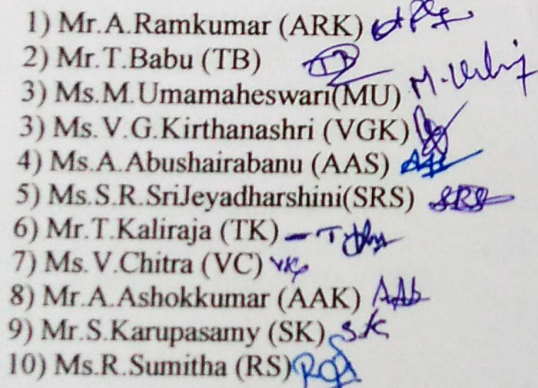 1) Mr.A.Ramkumar (ARK)
2) Mr.T.Babu (TB)
3) Ms.M.Umamaheswari(MU)
3) Ms.V.G.Kirthanashri (VGK)
4) Ms.A.Abushairabanu (AAS)
5) Ms.S.R.SriJeyadharshini(SRS) SRS
6) Mr.T.Kaliraja (TK)
7) Ms.V.Chitra (VC)
8) Mr.A.Ashokkumar (AAK)
9) Mr.S.Karupasamy (SK) S.K
10) Ms.R.Sumitha (RS)